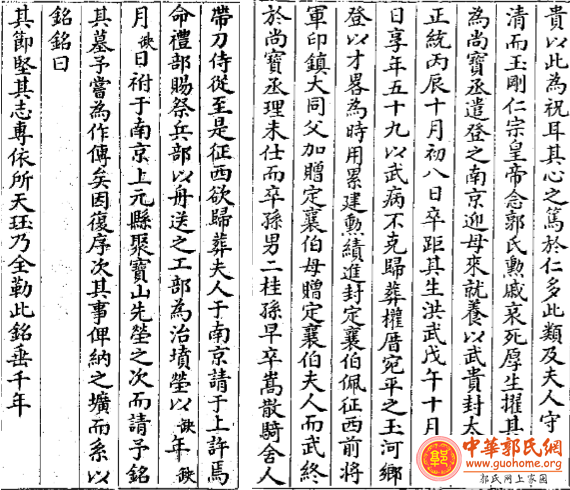 貴以此為祝耳其心之篤於仁多此類及夫人守
清而玉剛仁宗皇帝念郭氏勲戚哀死厚生擢其
為尚寶丞遣登之南京迎母來就養以武貴封太
正統丙辰十月初八日卒距其生洪武戊午十月
日享年五十九以武病不克歸葬權厝宛平之玉河鄉
登以才畧為時用累建勲績進封定襄伯佩征西前將
軍印鎮大同父加贈定襄伯母贈定襄伯夫人而武終
於尚寶丞理未仕而卒孫男二桂孫早卒嵩散騎舍人
帶刀侍從至是征西欲歸葬夫人于南京請于上許焉
命禮部賜祭兵部以舟送之工部為治墳塋以缺年缺
月缺日祔于南京上元縣聚寶山先塋之次而請予銘
其墓予嘗為作傳矣因復序次其事俾納之壙而系以
銘銘曰
其節堅其志專依所天玨乃全勒此銘垂千年
中華郭氏網
www.guohome.org
郭氏网上家园